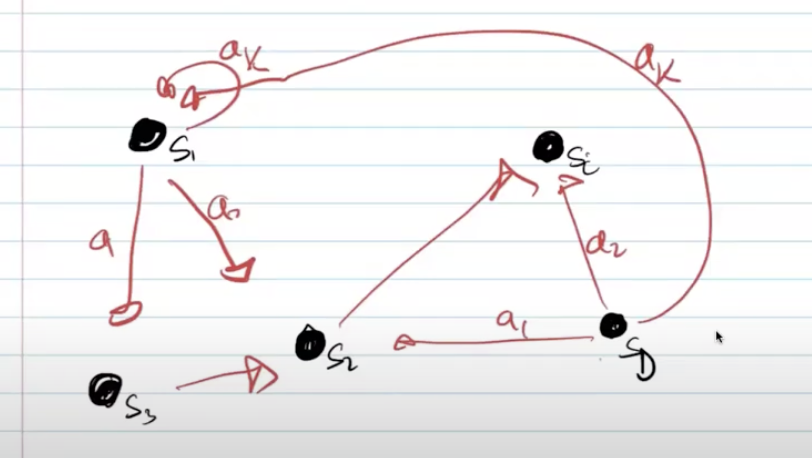 a_K
a_K
S_1
S_i
a_2
a_1
S_2
S_D
S_3